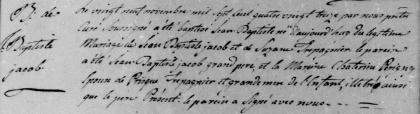 B. de
Baptiste
jacob
Le vingt neuf novembre mil sept cent quatre vingt treze par nous prêtre
curé soussigné a été baptisé Jean Baptiste né aujourd'hui du legitime
Mariage de Jean Baptiste jacob et de Suzane Trepagnier le parein
a été Jean Baptiste jacob grand pere, et la Mareine Chaterine
epouse de Trepagnier et grandemere de l'enfant,
que le pere Présent. le parein a signé avec nous